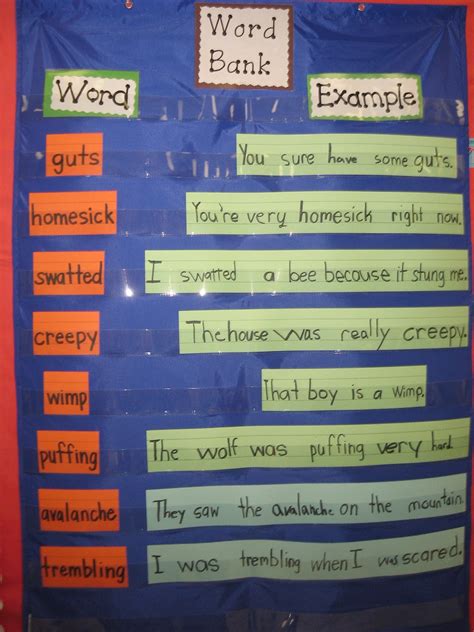 Word
Bank
Word
Example
guts
You sure have some guts.
homesick
You're very homesick right now.
swatted
I swatted a bee because it stung me.
creepy
The house was really creepy.
wimp
That boy is a wimp.
puffing
The wolf was puffing very hard
avalanche
They saw the avalanche on the mountain.
trembling
I was trembling when I was scared.